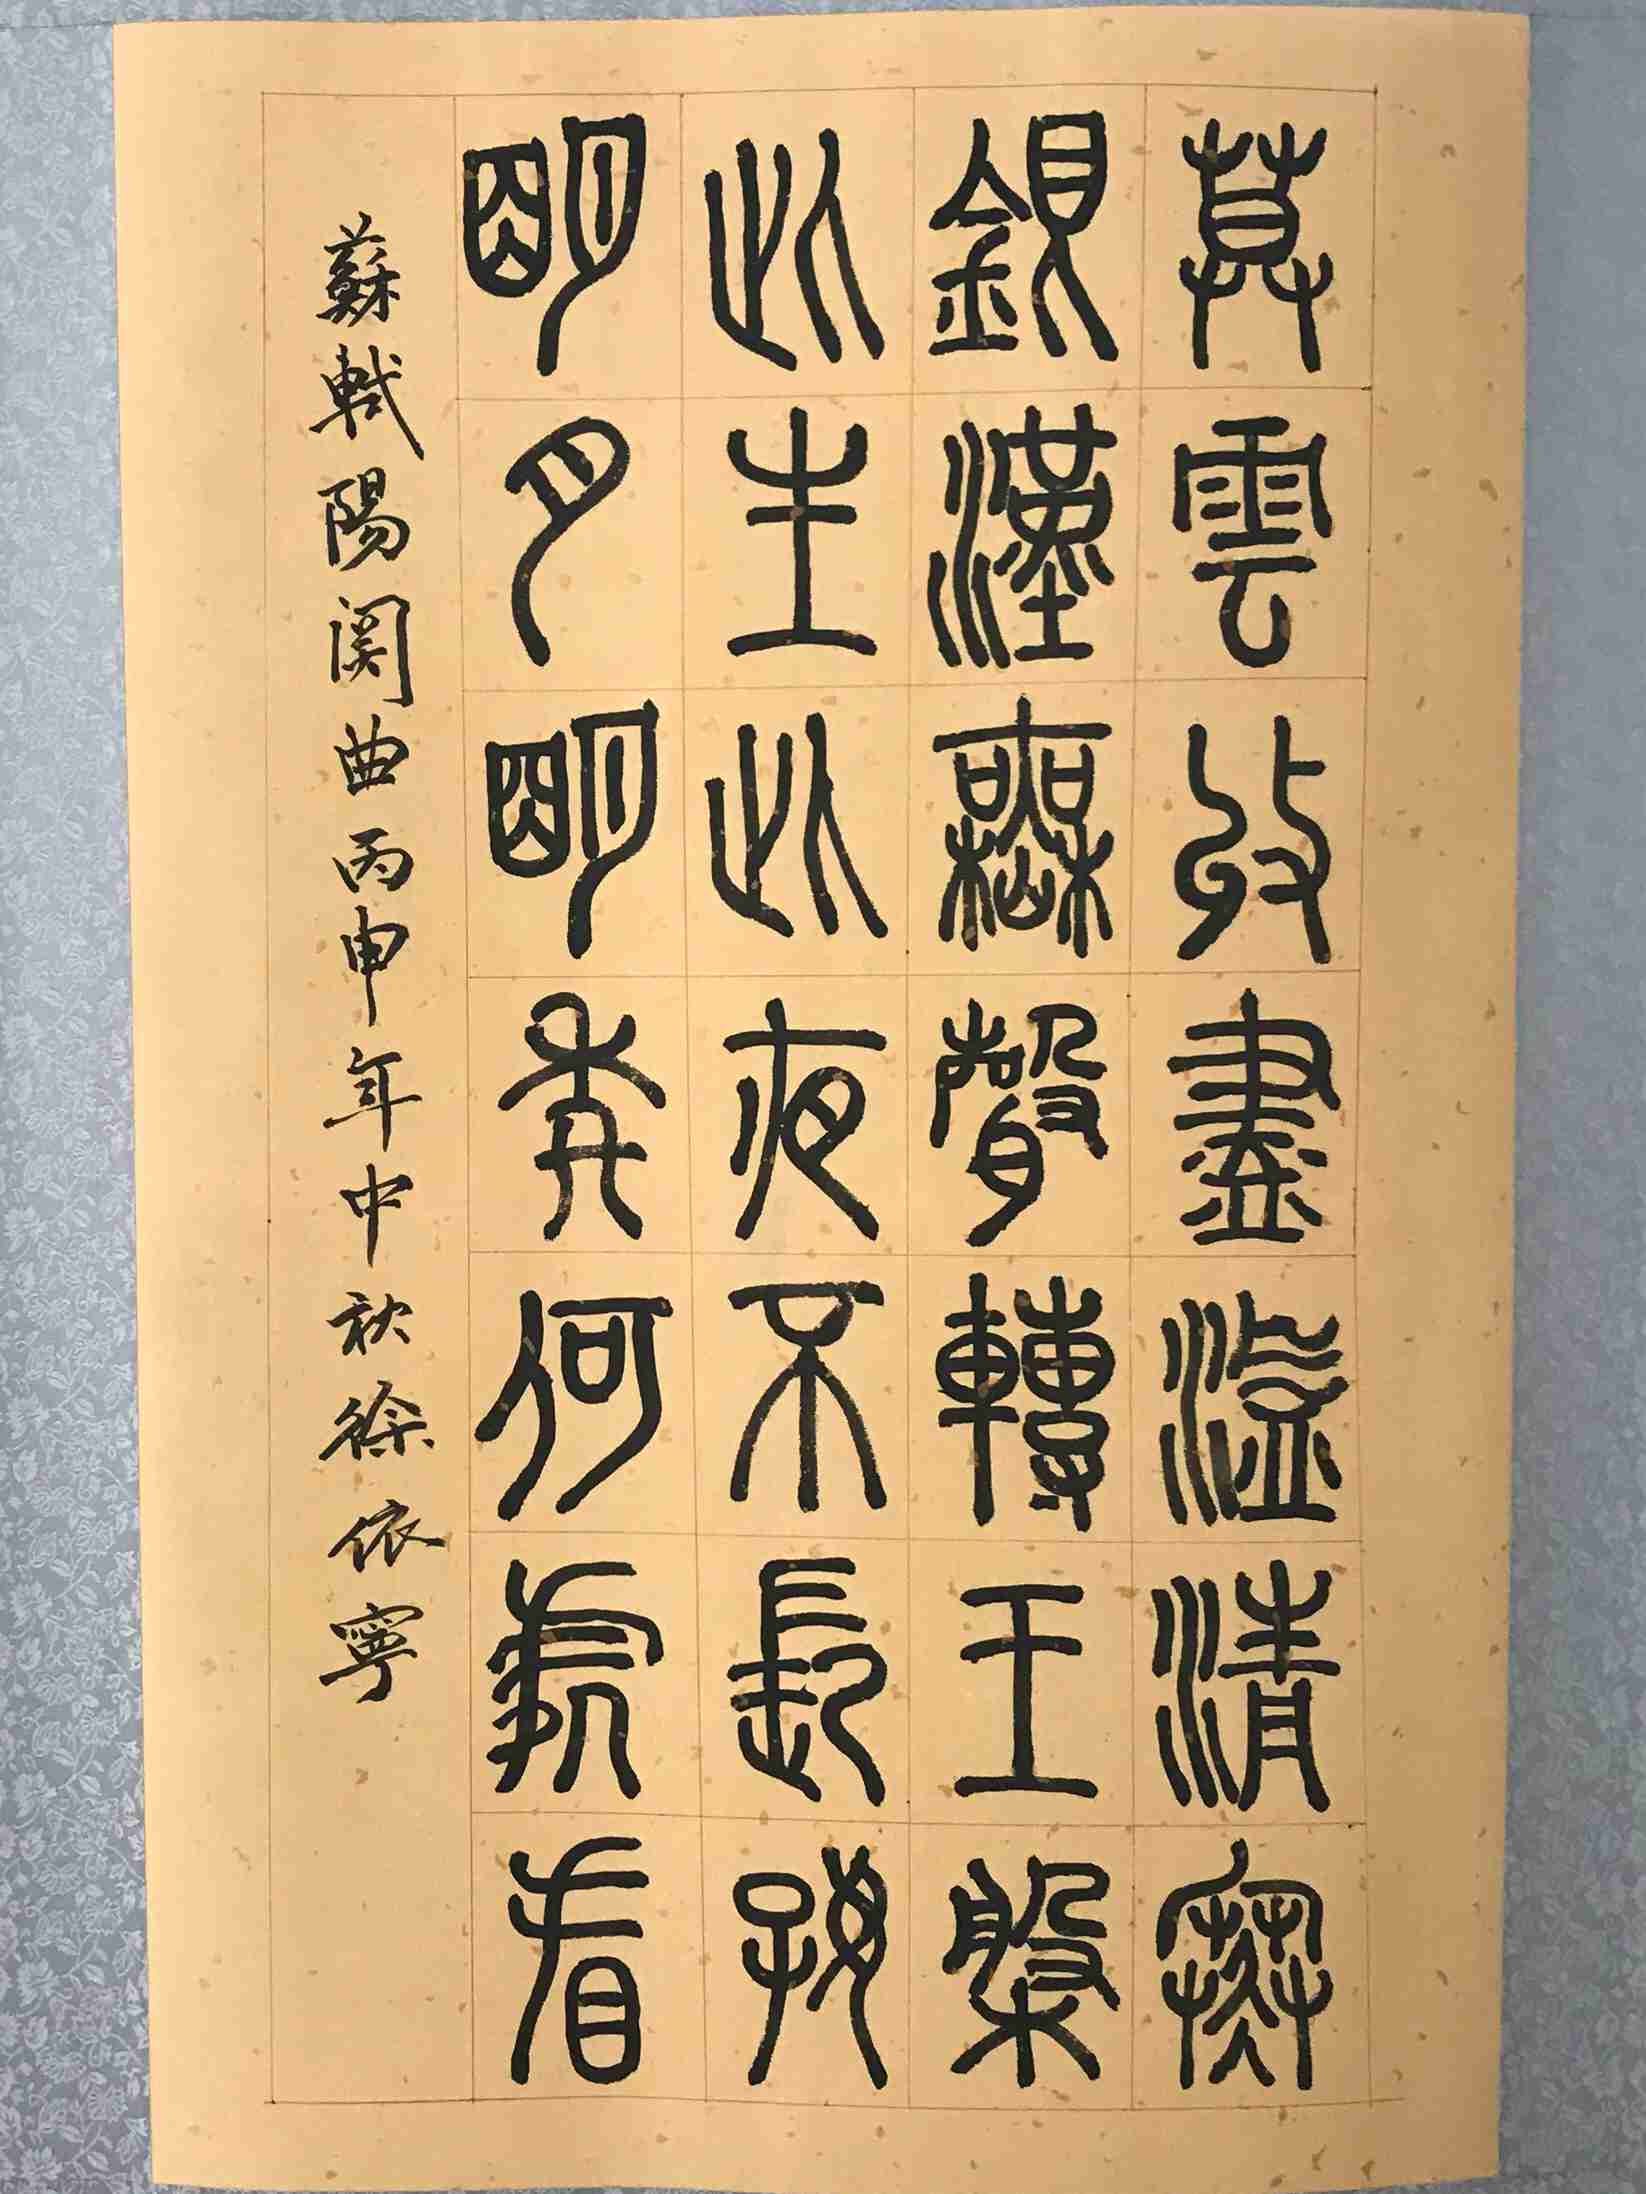 莫雲收盡溢清寒
銀漢無聲轉玉槃
此生此夜不長好
明月明年何處看
蘇軾陽関曲丙申年中秋徐依寧